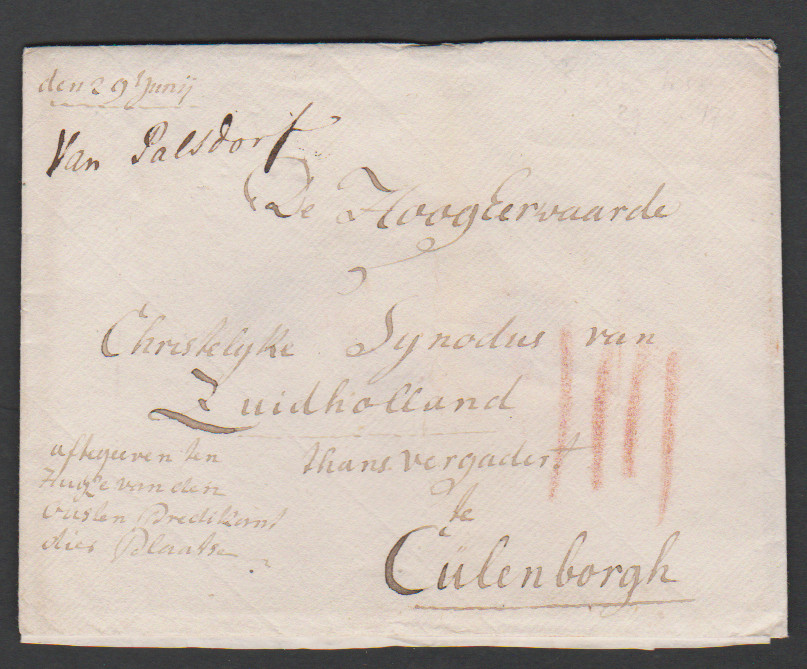 den 29 Junij
Van Palsdorf
De HoogEerwaarde
Christelyke Synodus van
Zuidholland
thans vergadert
te
Cülenborgh
aftegeeven ten
Huyze van den
oudsten Predikant
dier Plaatse
29 17